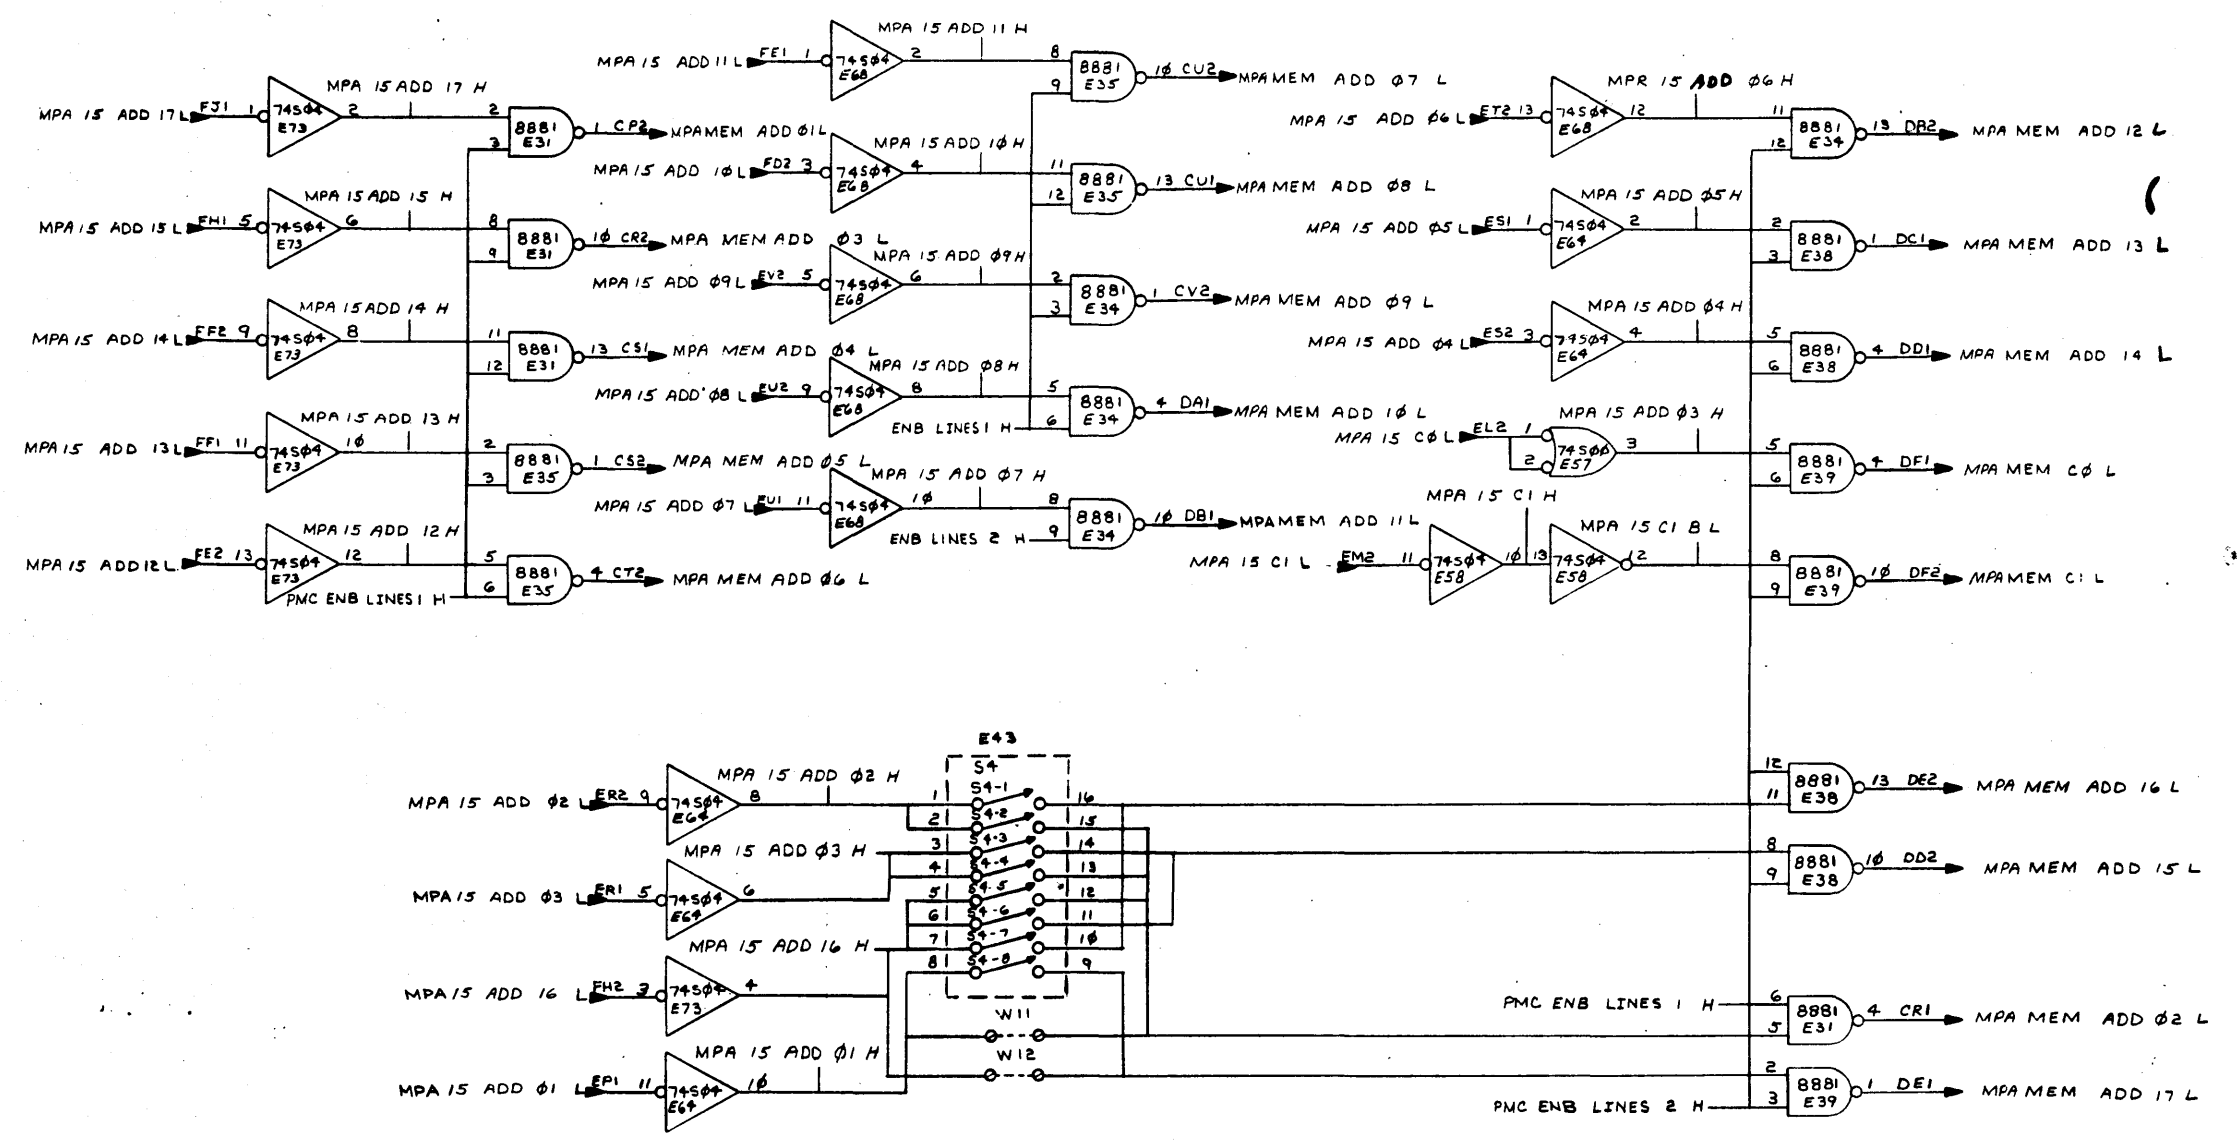 MPA 15 ADD 17 L FJ1 1 74SØ4 E73 2 MPA 15 ADD 17 H 2 3 8881 E31 1 CP2 MPA MEM ADD Ø1 L
MPA 15 ADD 15 L FH1 5 74SØ4 E73 6 MPA 15 ADD 15 H 8 9 8881 E31 1Ø CR2 MPA MEM ADD Ø3 L
MPA 15 ADD 14 L FF2 9 74SØ4 E73 8 MPA 15 ADD 14 H 11 12 8881 E31 13 CS1 MPA MEM ADD Ø4 L
MPA 15 ADD 13 L FF1 11 74SØ4 E73 1Ø MPA 15 ADD 13 H 2 3 8881 E35 1 CS2 MPA MEM ADD Ø5 L
MPA 15 ADD 12 L FE2 13 74SØ4 E73 12 MPA 15 ADD 12 H 5 6 8881 E35 4 CT2 MPA MEM ADD Ø6 L
PMC ENB LINES 1 H
MPA 15 ADD 11 L FE1 1 74SØ4 E68 2 MPA 15 ADD 11 H 8 9 8881 E35 1Ø CU2 MPA MEM ADD Ø7 L
MPA 15 ADD 1Ø L FD2 3 74SØ4 E68 4 MPA 15 ADD 1Ø H 11 12 8881 E35 13 CU1 MPA MEM ADD Ø8 L
MPA 15 ADD Ø9 L EV2 5 74SØ4 E68 6 MPA 15 ADD Ø9 H 2 3 8881 E34 1 CV2 MPA MEM ADD Ø9 L
MPA 15 ADD Ø8 L EU2 9 74SØ4 E68 8 MPA 15 ADD Ø8 H 5 6 8881 E34 4 DA1 MPA MEM ADD 1Ø L
ENB LINES 1 H
MPA 15 ADD Ø7 L EU1 11 74SØ4 E68 1Ø MPA 15 ADD Ø7 H 8 9 8881 E34 1Ø DB1 MPA MEM ADD 11 L
ENB LINES 2 H
MPA 15 ADD Ø6 L ET2 13 74SØ4 E68 12 MPR 15 ADD Ø6 H 11 12 8881 E34 13 DB2 MPA MEM ADD 12 L
MPA 15 ADD Ø5 L ES1 1 74SØ4 E64 2 MPA 15 ADD Ø5 H 2 3 8881 E38 1 DC1 MPA MEM ADD 13 L
MPA 15 ADD Ø4 L ES2 3 74SØ4 E64 4 MPA 15 ADD Ø4 H 5 6 8881 E38 4 DD1 MPA MEM ADD 14 L
MPA 15 CØ L EL2 1 2 74SØØ E57 3 MPA 15 ADD Ø3 H 5 6 8881 E39 4 DF1 MPA MEM CØ L
MPA 15 C1 L EM2 11 74SØ4 E58 1Ø MPA 15 C1 H 13 74SØ4 E58 12 MPA 15 C1 B L 8 9 8881 E39 1Ø DF2 MPA MEM C1 L
E43
S4
MPA 15 ADD Ø2 L ER2 9 74SØ4 E64 8 MPA 15 ADD Ø2 H
MPA 15 ADD Ø3 H
MPA 15 ADD Ø3 L ER1 5 74SØ4 E64 6
MPA 15 ADD 16 H
MPA 15 ADD 16 L FH2 3 74SØ4 E73 4
MPA 15 ADD Ø1 L EP1 11 74SØ4 E64 1Ø MPA 15 ADD Ø1 H
1 S4-1 16
2 S4-2 15
3 S4-3 14
4 S4-4 13
5 S4-5 12
6 S4-6 11
7 S4-7 1Ø
8 S4-8 9
W11
W12
12 11 8881 E38 13 DE2 MPA MEM ADD 16 L
8 9 8881 E38 1Ø DD2 MPA MEM ADD 15 L
PMC ENB LINES 1 H 6 5 8881 E31 4 CR1 MPA MEM ADD Ø2 L
PMC ENB LINES 2 H 2 3 8881 E39 1 DE1 MPA MEM ADD 17 L